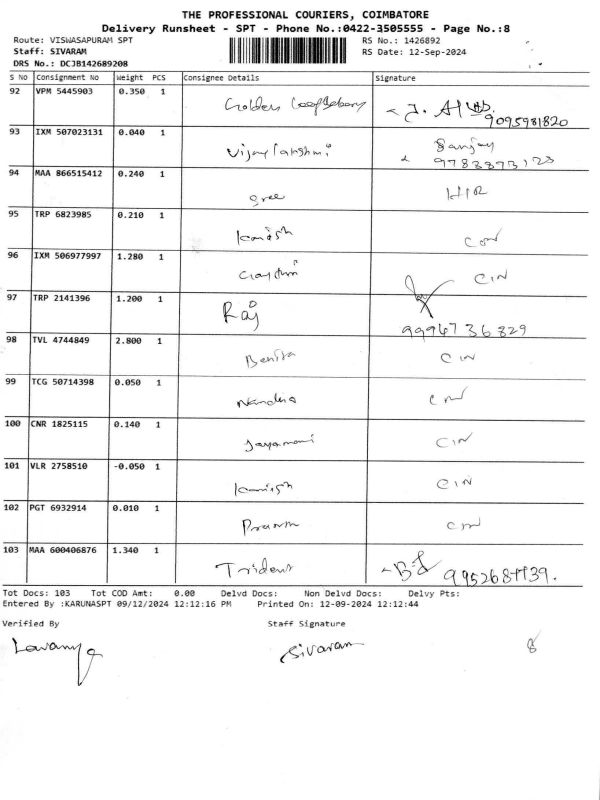 THE PROFESSIONAL COURIERS, COIMBATORE
Delivery Runsheet - SPT - Phone No.:0422-3505555 - Page No.:8
Route: VISWASAPURAM SPT RS No.: 1426892
Staff: SIVARAM RS Date: 12-Sep-2024
DRS No.: DCJB142689208
S No Consignment No Weight PCS Consignee Details Signature
92 VPM 5445903 0.350 1
Golden
9095981820
93 IXM 507023131 0.040 1
Vijaylakshmi Sanjay
9783393123
94 MAA 866515412 0.240 1
Sree
95 TRP 6823985 0.210 1
Kanish
96 IXM 506977997 1.280 1
CIN
97 TRP 2141396 1.200 1
Raj
9994736829
98 TVL 4744849 2.800 1
Benita CIN
99 TCG 50714398 0.050 1
Nandha
100 CNR 1825115 0.140 1
Jayamani CIN
101 VLR 2758510 -0.050 1
Kanish CIN
102 PGT 6932914 0.010 1
103 MAA 600406876 1.340 1
Trident
Tot Docs: 103 Tot COD Amt: 0.00 Delvd Docs: Non Delvd Docs: Delvy Pts:
Entered By :KARUNASPT 09/12/2024 12:12:16 PM Printed On: 12-09-2024 12:12:44
Verified By Staff Signature
Lavanya Sivaram 8